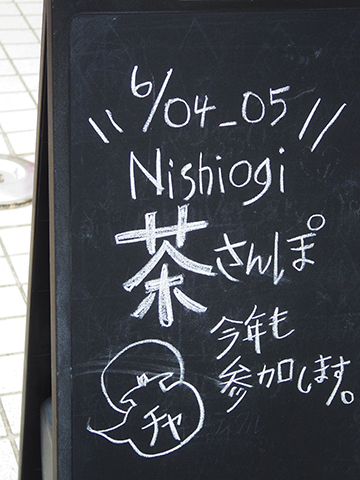 6/04_05
Nishiogi
茶さんぽ
今年も
参加します。
チャ